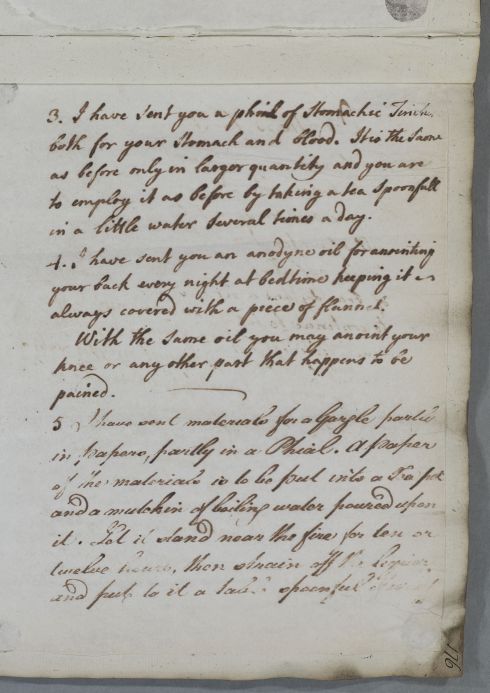 3. I have sent you a phial of Stomachic Tinct.
both for your Stomach and blood. It is the Same
as before only in larger quantity and you are
to employ it as before by taking a tea Spoonfull
in a little water Several times a day.
4. I have sent you an anodyne oil for anointing
your back every night at bedtime keeping it
always covered with a piece of flannel.
With the Same oil you may anoint your
knee or any other part that happens to be
pained.
5 I have sent materials for a Gargle partly
in papers, partly in a Phial. A paper
of the materials is to be put into a Tea pot
and a mutchkin of boiling water poured upon
it. Let it stand near the fire for ten or
twelve hours, then strain off the liquor
and put to it a table spoonful
176